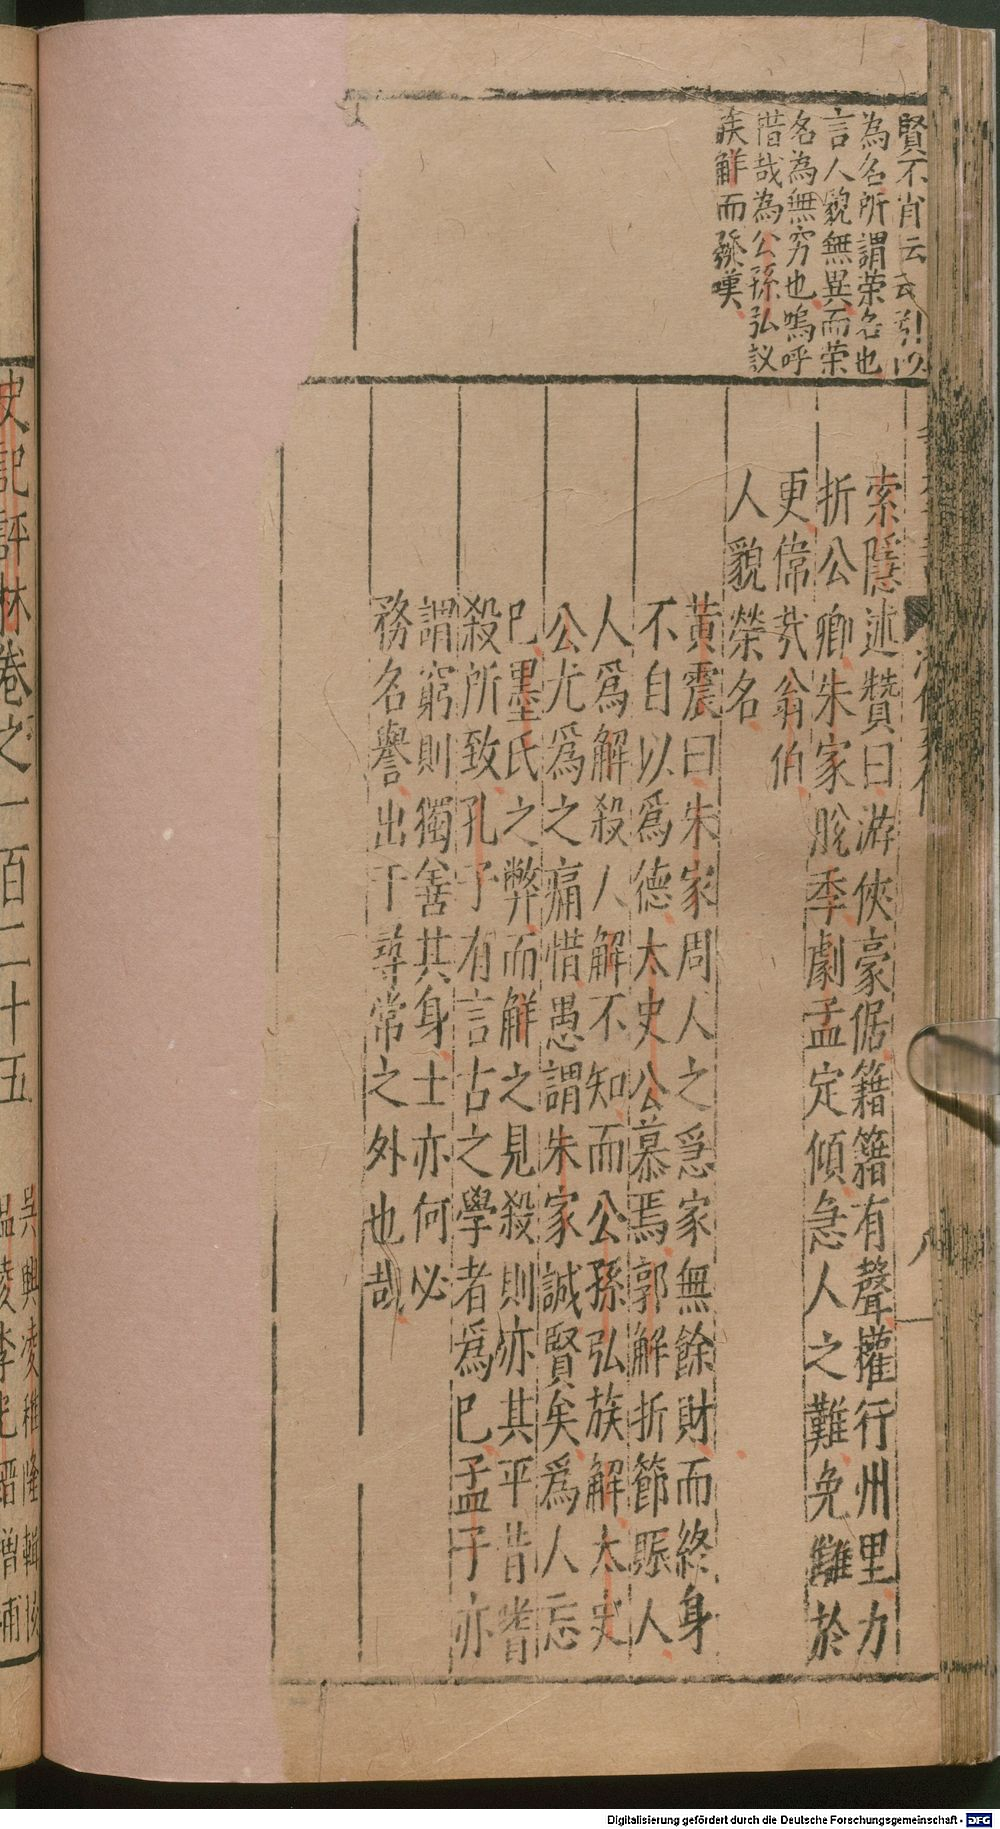 賢不肖云云引以
為名所謂荣名也
言人貌無異而荣
名為無穷也嗚呼
惜哉為公孫弘議
族解而發嘆
索隱述贊曰游俠豪倨籍籍有聲權行州里力
折公卿朱家脫季劇孟定傾急人之難免讎於
更偉㢤翁伯
人貌榮名
黃震曰朱家周人之急家無餘財而終身
不自以爲德太史公慕焉郭解折節賑人
人爲解殺人解不知而公孫弘族解太史
公尤爲之痛惜愚謂朱家誠賢矣爲人忘
已墨氏之弊而解之見殺則亦其平昔嗜
殺所致孔子有言古之學者爲已孟子亦
謂窮則獨善其身士亦何必
務名譽出于尋常之外也哉
八
史記評林卷之一百二十五
吳興凌稚隆輯校
温陵李光縉增補
Digitalisierung gefördert durch die Deutsche Forschungsgemeinschaft - DFG